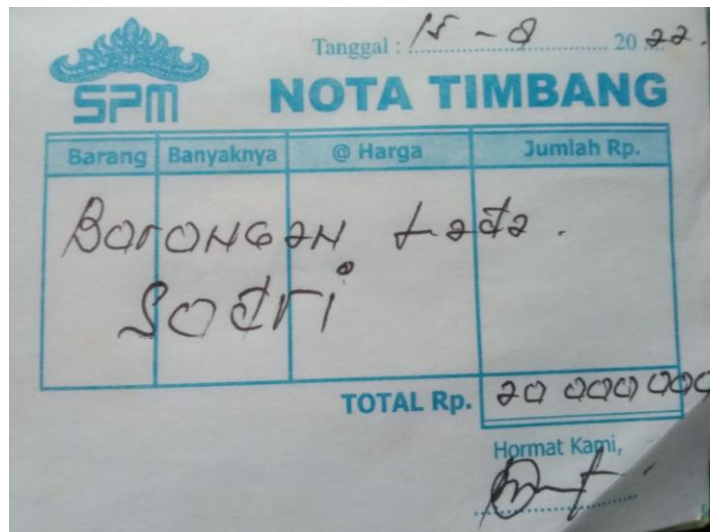 Tanggal : 15 - 8 2022.
SPM
NOTA TIMBANG
Barang Banyaknya @ Harga Jumlah Rp.
Borongan Lada.
Sodri
TOTAL Rp. 20 000 000
Hormat Kami,